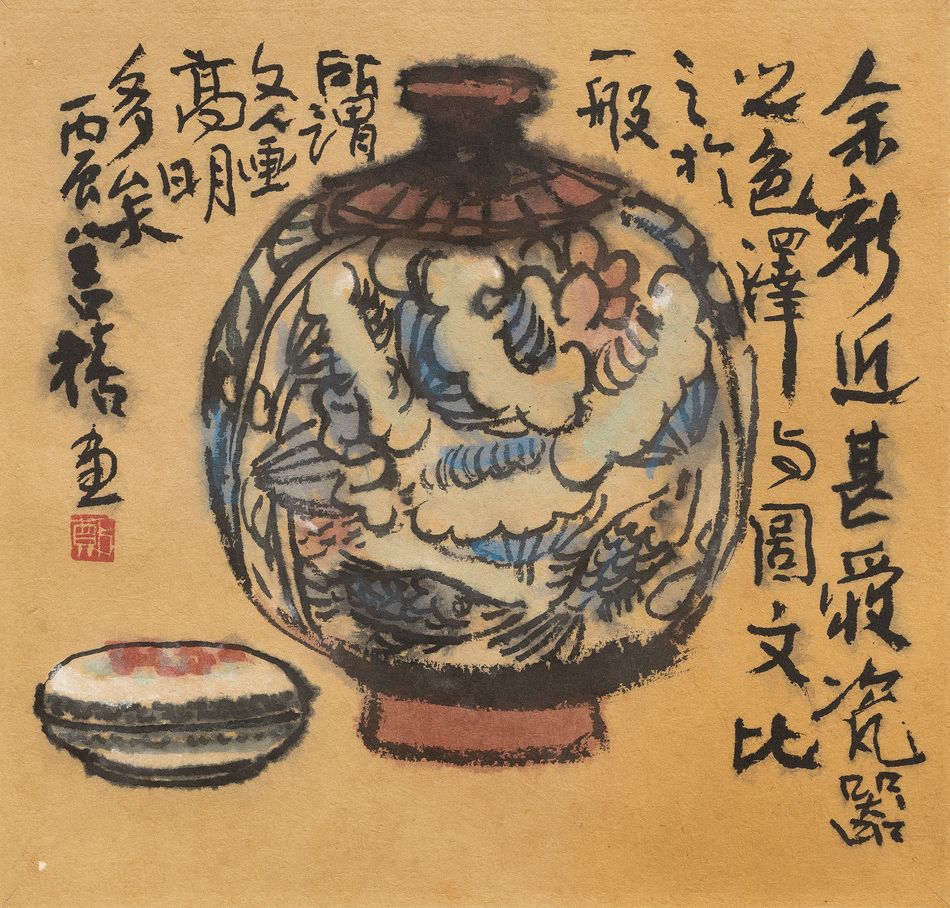 余新近甚愛瓷器
之色澤与圖文比
之於
一般
所謂
文人畫
高明
多矣
丙辰善禧畫
鄭